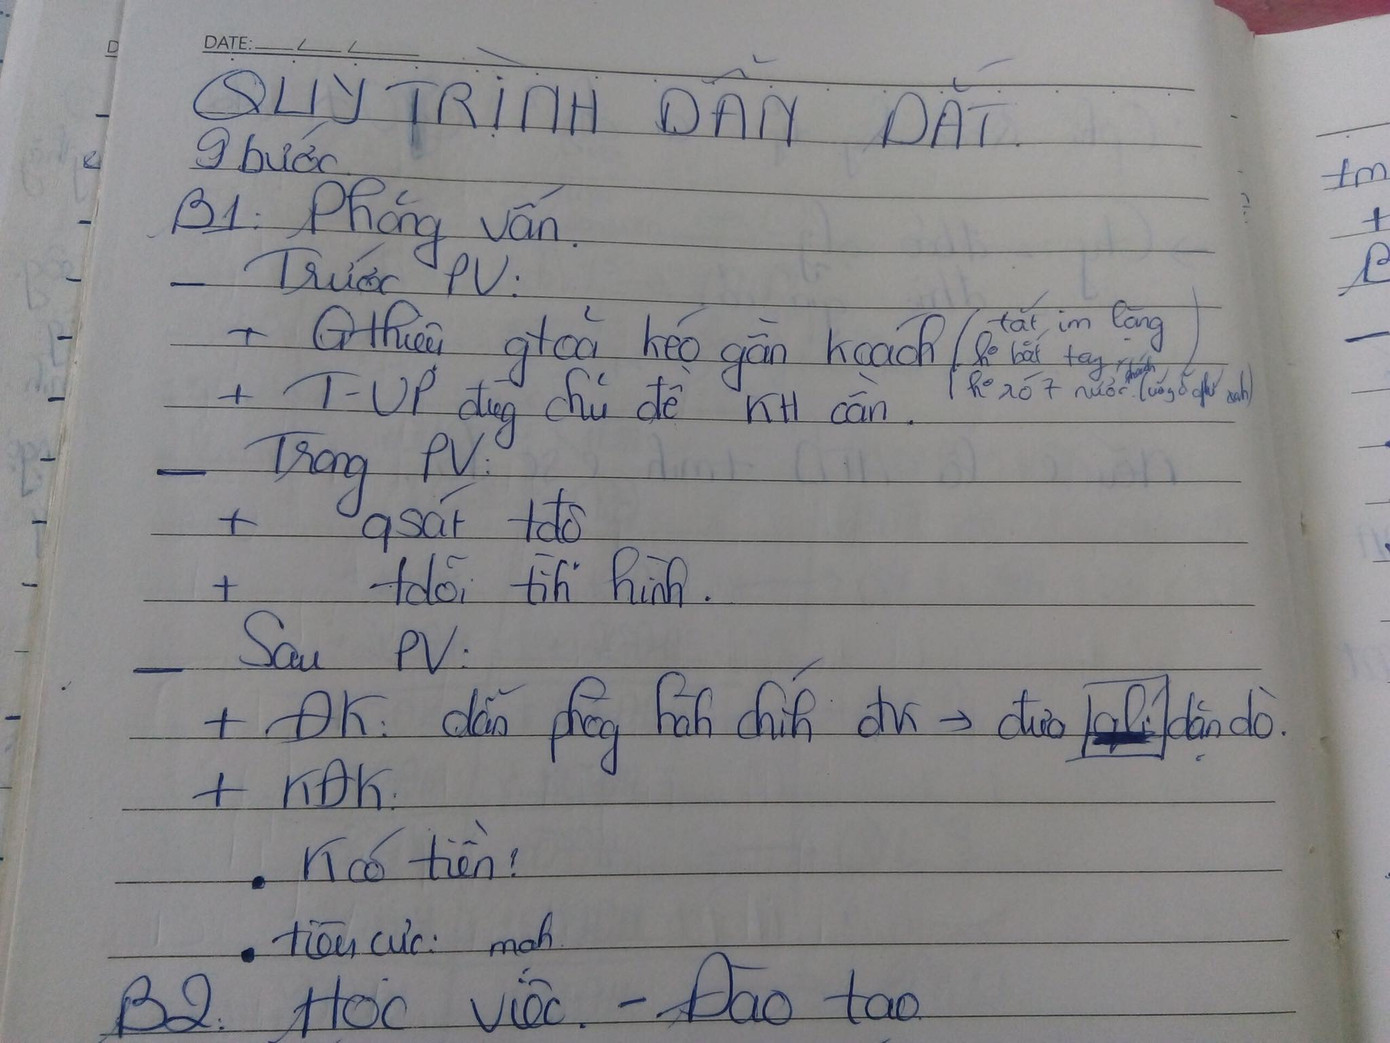 DATE: __/__/__
QUY TRÌNH DẪN DẮT
9 bước
B1: Phỏng vấn.
- Trước PV:
+ Gthiệu gtoả kéo gần kcách (tất im lặng
ko bắt tay
ko rót nước
+ T-UP đúg chủ đề KH cần.
- Trong PV:
+ qsát tđộ
+ tdõi tìh hình.
- Sau PV:
+ ĐK: dẫn phòg hàh chíh đk → đưa dặn dò.
+ KĐK:
• K có tiền:
• tiêu cực: mạh
B2: Học việc. - Đào tạo